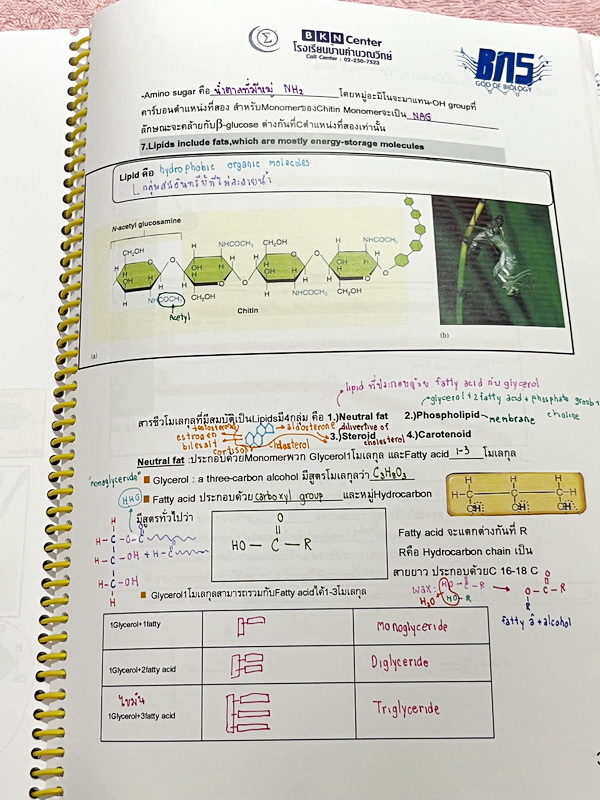 BKN Center
โรงเรียนบานคำนวณวิทย์
Call Center : 02-250-7523
BNS
GOD OF BIOLOGY
-Amino sugar คือ น้ำตาลที่มีหมู่ NH₂ โดยหมู่อะมิโนจะมาแทน-OH groupที่
คาร์บอนตำแหน่งที่สอง สำหรับMonomerของChitin Monomerจะเป็น NAG
ลักษณะจะคล้ายกับβ-glucose ต่างกันที่Cตำแหน่งที่สองเท่านั้น
7.Lipids include fats,which are mostly energy-storage molecules
Lipid คือ hydrophobic organic molecules
กลุ่มสารอินทรีย์ที่ไม่ละลายน้ำ
N-acetyl glucosamine
CH₂OH H NHCOCH₃ CH₂OH H NHCOCH₃
OH OH OH OH
NHCOCH₃ CH₂OH NHCOCH₃ CH₂OH
Acetyl
Chitin
(a)
(b)
lipid ที่ประกอบด้วย fatty acid กับ glycerol
glycerol+2fatty acid+phosphate group+
choline
สารชีวโมเลกุลที่มีสมบัติเป็นLipidsมี4กลุ่ม คือ 1.)Neutral fat 2.)Phospholipid membrane
testosterone aldosterone dilivertive of
estrogen cholesterol
bilesalt
cortisol cholesterol 3.)Steroid 4.)Carotenoid
Neutral fat :ประกอบด้วยMonomerพวก Glycerol1โมเลกุล และFatty acid 1-3 โมเลกุล
"monoglyceride"
Glycerol : a three-carbon alcohol มีสูตรโมเลกุลว่า C₃H₈O₃
Fatty acid ประกอบด้วย carboxyl group และหมู่Hydrocarbon
มีสูตรทั่วไปว่า
O
HO — C — R
H
H-C-O-C
H-C-OH
H-C-OH
H
H H H
H C C C H
OH OH OH
Fatty acid จะแตกต่างกันที่ R
Rคือ Hydrocarbon chain เป็น
สายยาว ประกอบด้วยC 16-18 C
wax: HO-C-R
H₂O HO-R
O
O-C-R
R
fatty a + alcohol
Glycerol1โมเลกุลสามาถรวมกับFatty acidได้1-3โมเลกุล
1Glycerol+1fatty Monoglyceride
1Glycerol+2fatty acid Diglyceride
ไขมัน
1Glycerol+3fatty acid Triglyceride